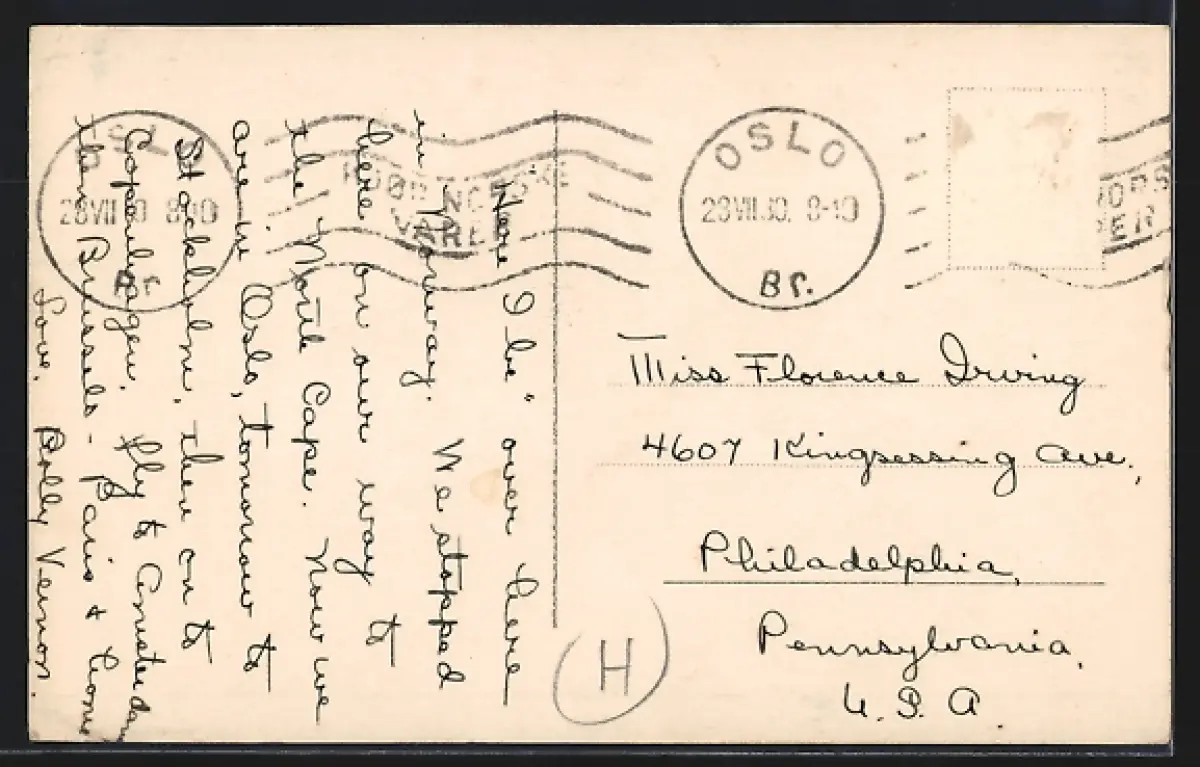 OSLO
28 VII 30 8-10
Br.
NORSKE
VARER
OSLO
28 VII 30. 8-10
Br.
Here I be" over here
in Norway. We stopped
here on our way to
the North Cape. Now we
are in Oslo, tomorrow to
Stockholm, then on to
Copenhagen, fly to Amsterdam
then Brussels - Paris & home
Love, Dolly Vernon.
Miss Florence Irving
4607 Kingsessing Ave,
Philadelphia,
Pennsylvania,
U.S.A.
H